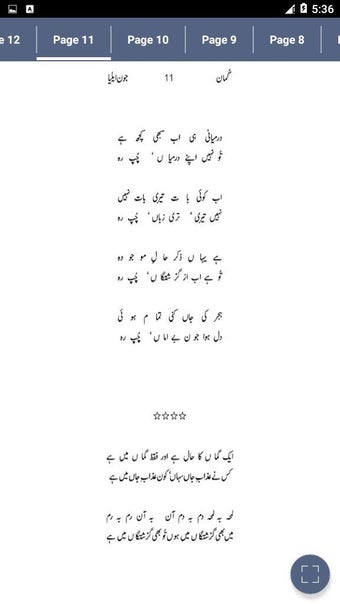 5:36
Page 12
Page 11
Page 10
Page 9
Page 8
گمان 11 جون ایلیا
درمیانی ہی اب سبھی کچھ ہے
تو نہیں اپنے درمیاں، چُپ رہ
اب کوئی بات تیری بات نہیں
نہیں تیری، تری زباں، چُپ رہ
ہے یہاں ذکر حالِ موجودہ
تُو ہے اب از گزشتگاں، چُپ رہ
ہجر کی جاں کنی تمام ہوئی
دل ہوا جون بے اماں، چُپ رہ
☆☆☆☆
ایک گماں کا حال ہے اور فقط گماں میں ہے
کس نے عذابِ جاں سہا، کون عذابِ جاں میں ہے
لمحہ بہ لمحہ دم بہ دم آن بہ آن رم بہ رم
میں بھی گزشتگاں میں ہوں تُو بھی گزشتگاں میں ہے